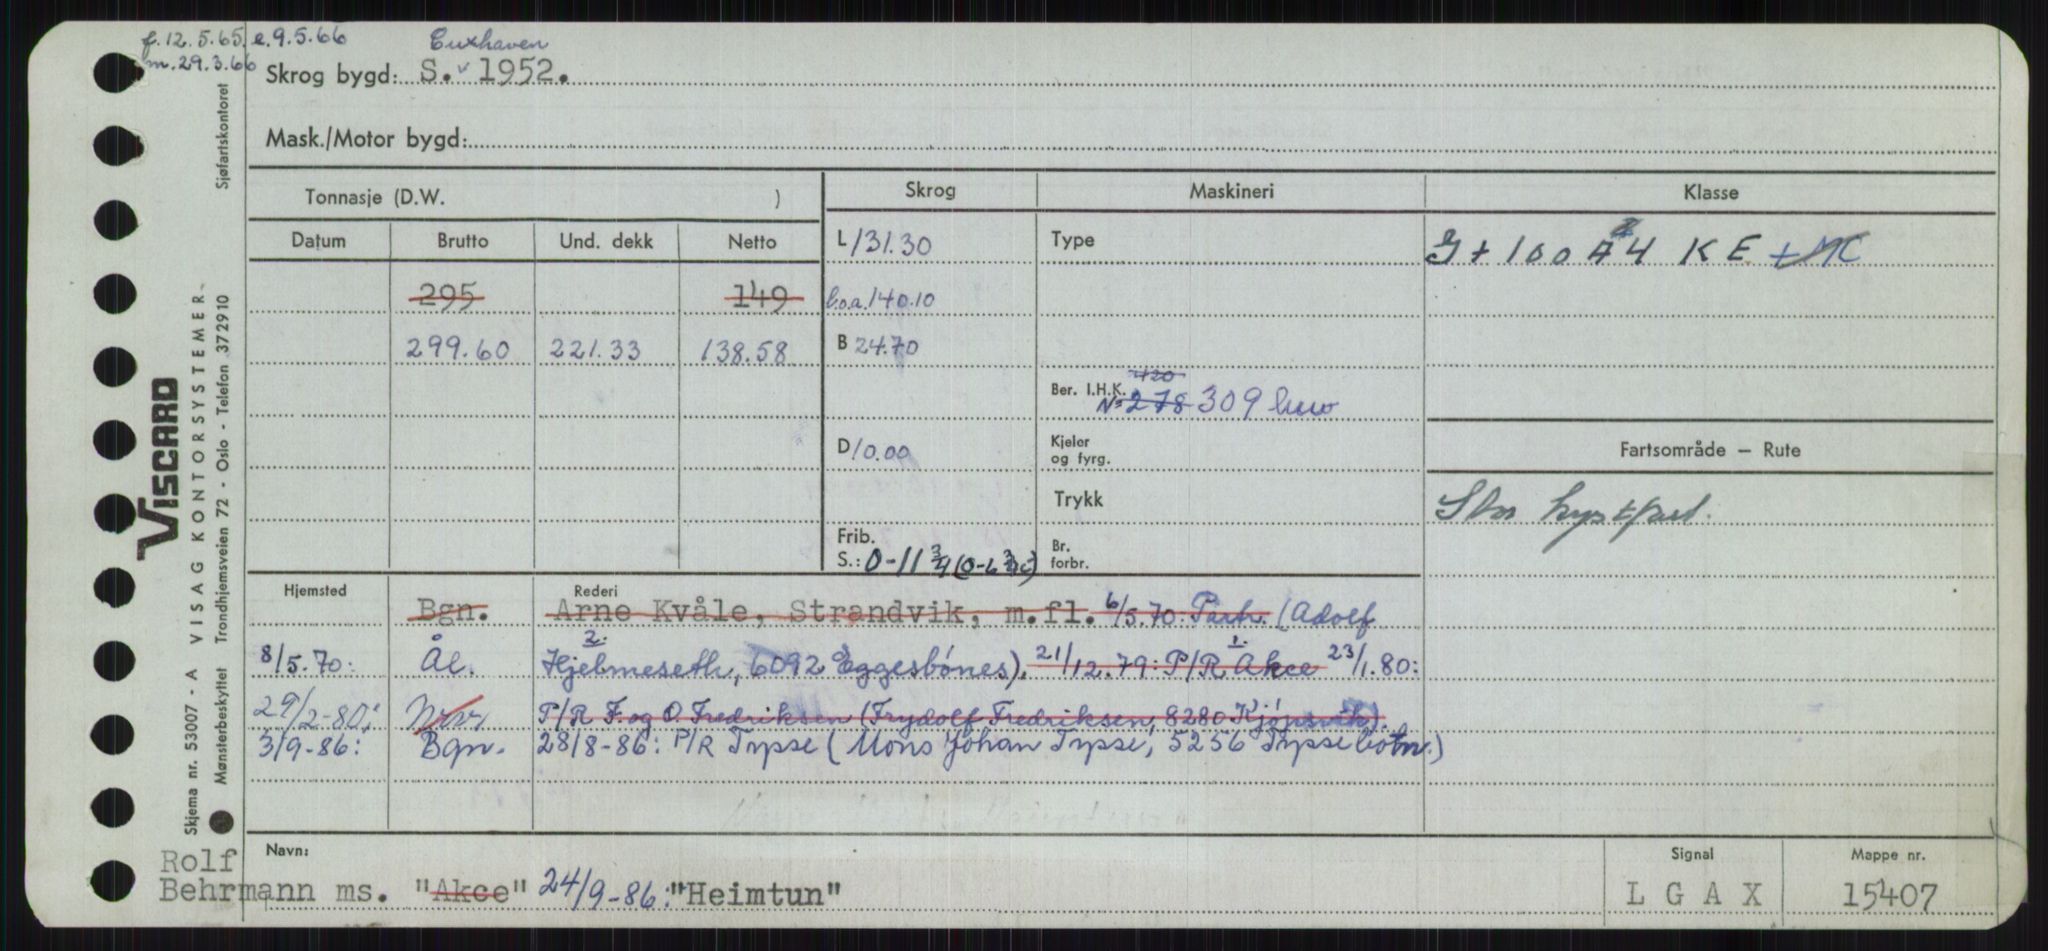 f. 12.5.65. e. 9.5.66 Cuxhaven
m. 29.3.66 Skrog bygd: S. 1952.
Mask./Motor bygd:
Tonnasje (D.W. ) Skrog Maskineri Klasse
Datum Brutto Und. dekk Netto L 131.30 Type + 100 A 4 K E + MC
295 149 l.o.a. 140.10
299.60 221.33 138.58 B 24.70
420
Ber. I.H.K. Nº 278 309
D 10.00 Kjeler og fyrg. Fartsområde – Rute
Trykk Stor kystfart.
Frib. S.: 0-11 3/4 (0-6 3/4) Br. forbr.
Hjemsted Rederi
Bgn. Arne Kvåle, Strandvik, m.fl. 6/5.70: Partr. (Adolf
2. 1.
8/5.70: Ål. Hjelmeseth, 6092 Eggesbönes). 21/12.79: P/R Akce 23/1.80:
29/2-80: P/R F. og O. Fredriksen (Frydolf Fredriksen, 8280 Kjöpsvik).
3/9-86: Bgn. 28/8-86: P/R Tysse (Mons Johan Tysse, 5256 Tyssebotn.)
Navn: Signal Mappe nr.
Rolf
Behrmann ms. "Akce" 24/9-86: "Heimtun" L G A X 15407
VISCARD
Skjema nr. 53007 - A VISAG KONTORSYSTEMER
Mønsterbeskyttet Trondhjemsveien 72 - Oslo - Telefon 372910 Sjøfartskontoret